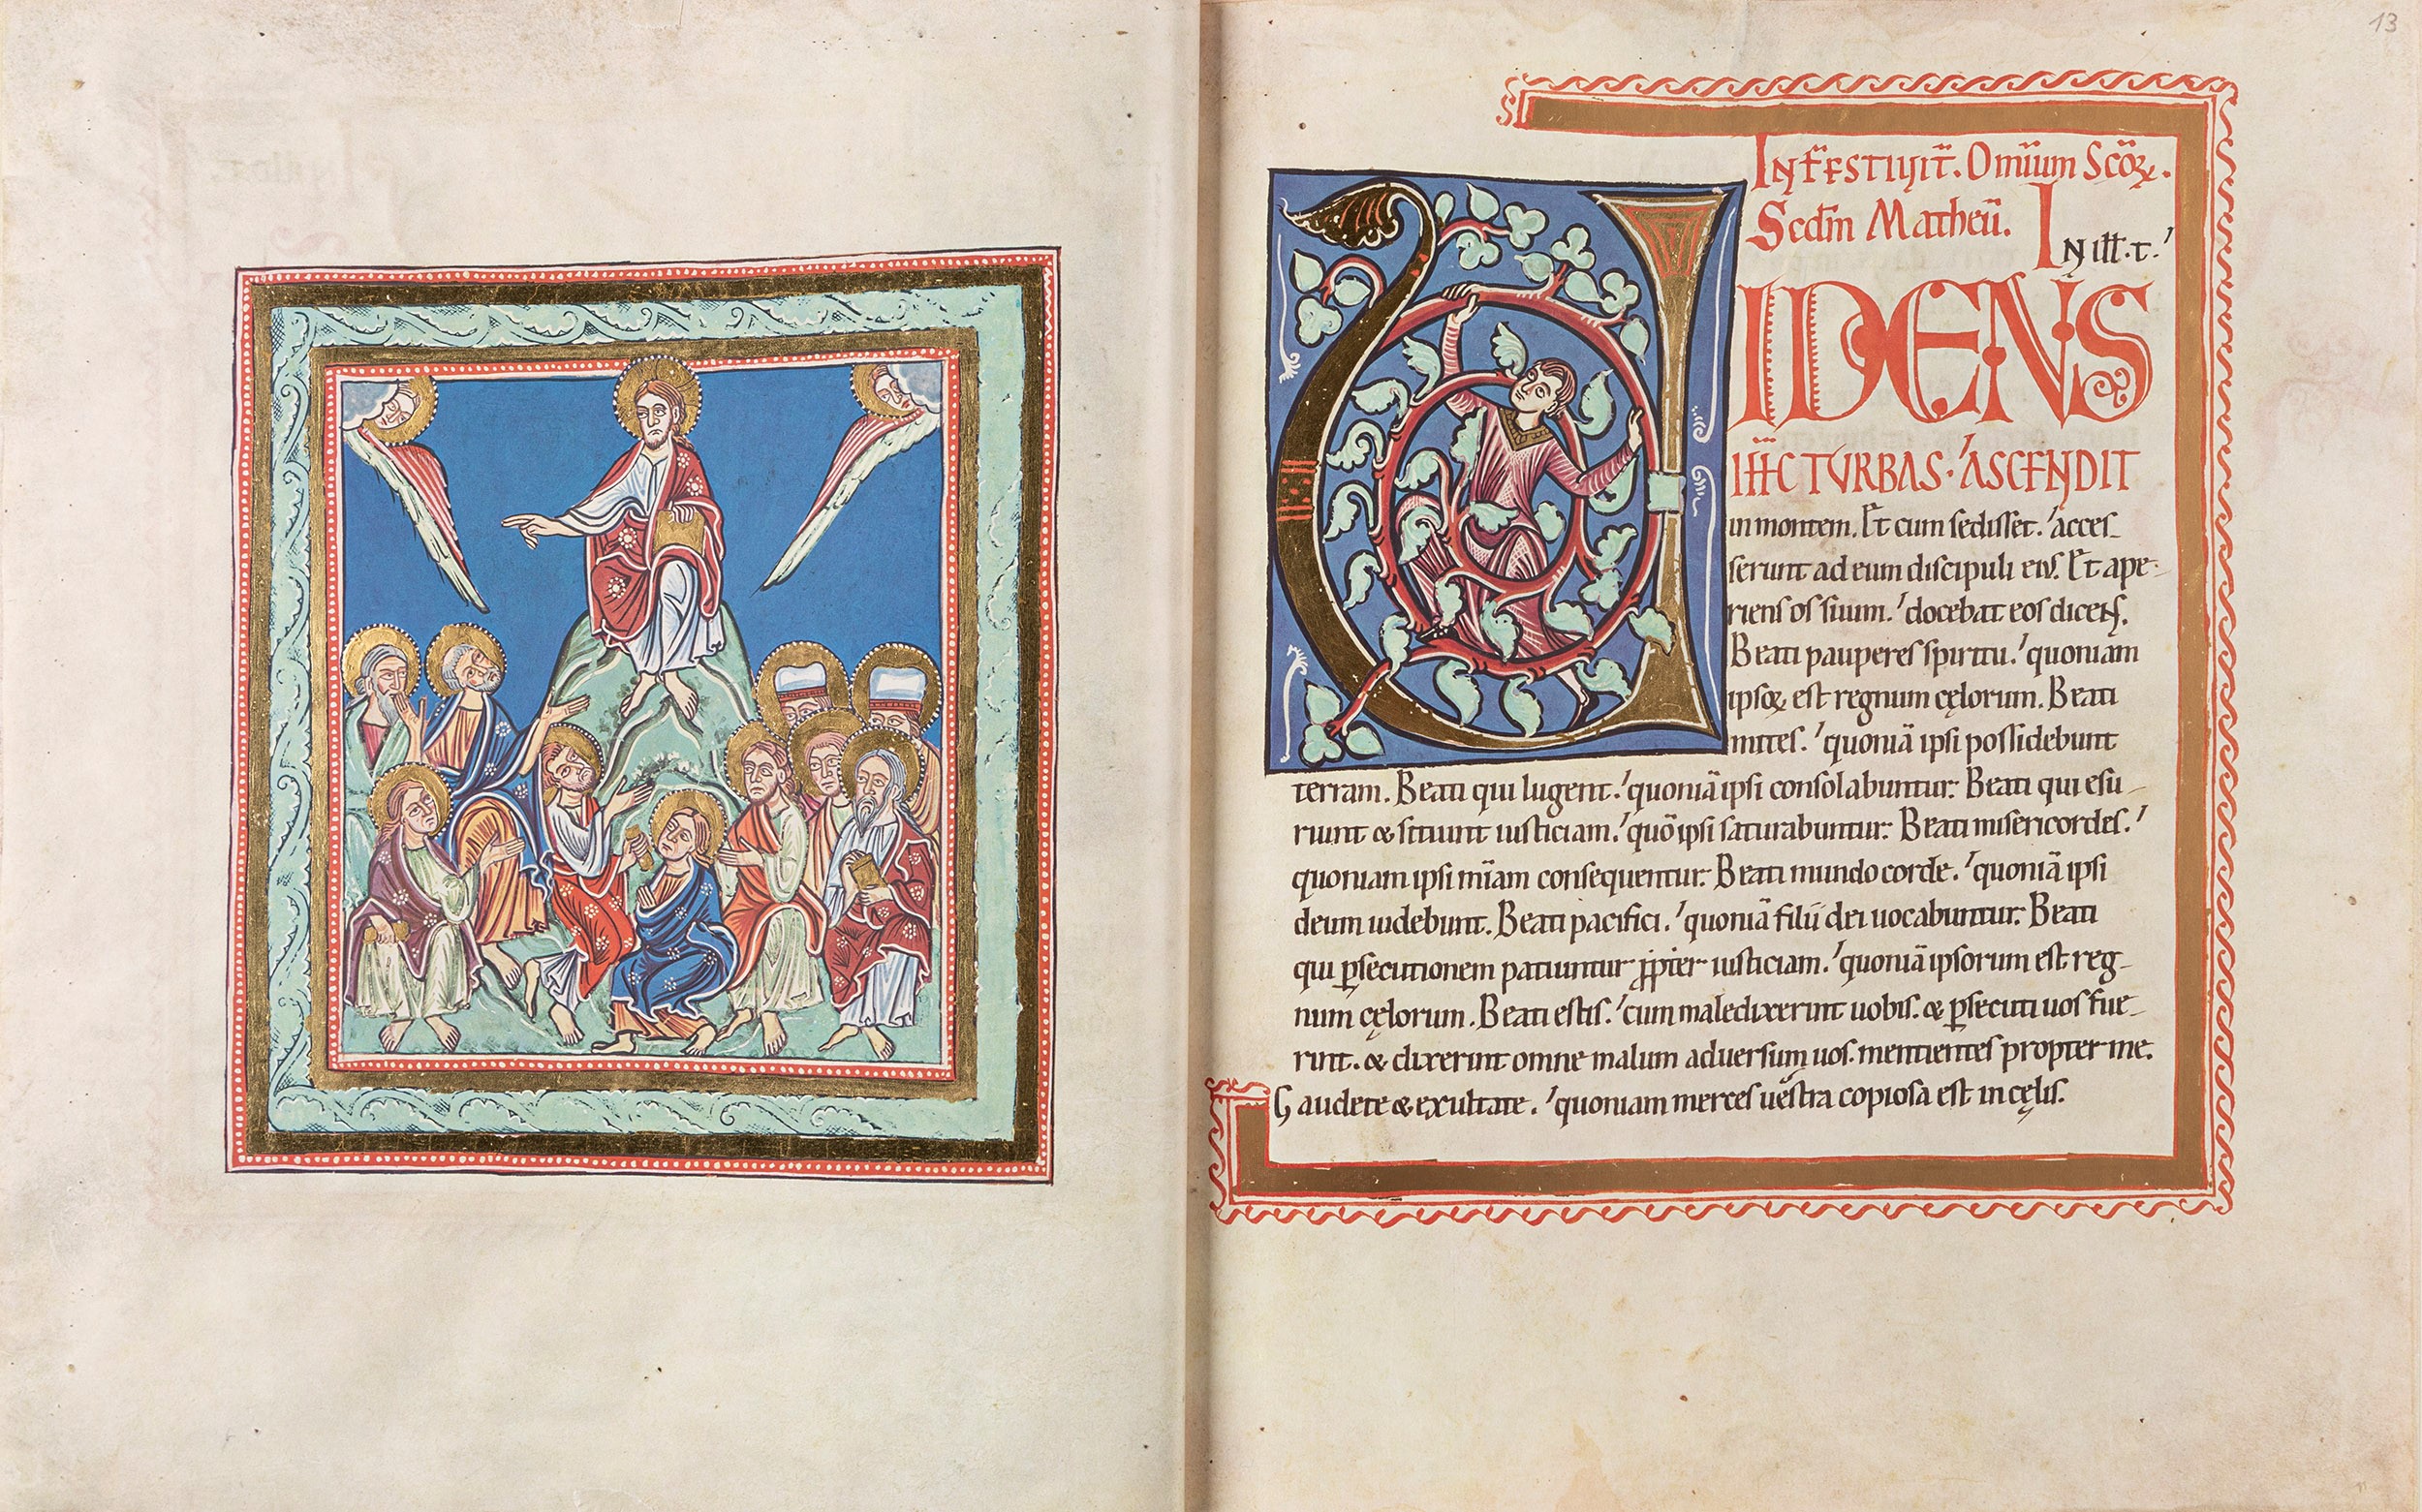 13
IN FESTIVIT̅. Om̅ium Sc̅oꝝ.
Scd̅m Matheu̅. IN ill.t.
VIDENS
IHC TURBAS. ASCENDIT
in montem. Et cum sedisset. acces-
serunt ad eum discipuli eiꝰ. Et ape-
riens os suum. docebat eos dicens.
Beati pauperes spiritu. quoniam
ipsoꝝ est regnum cęlorum. Beati
mites. quonia̅ ipsi possidebunt
terram. Beati qui lugent. quonia̅ ipsi consolabuntur. Beati qui esu-
riunt & sitiunt iusticiam. quo̅ ipsi saturabuntur. Beati misericordes.
quoniam ipsi mi̅am consequentur. Beati mundo corde. quonia̅ ipsi
deum uidebunt. Beati pacifici. quonia̅ filii dei uocabuntur. Beati
qui ꝑsecutionem patiuntur ꝓpter iusticiam. quonia̅ ipsorum est reg-
num cęlorum. Beati estis. cum maledixerint uobis. & ꝑsecuti uos fue-
rint. & dixerint omne malum aduersum uos. mentientes propter me.
Gaudete & exultate. quoniam merces uestra copiosa est in cęlis.